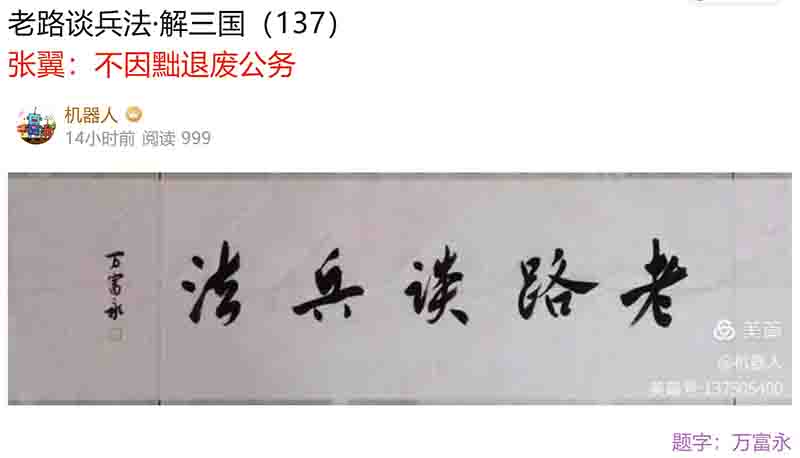 老路谈兵法·解三国（137）
张翼：不因黜退废公务
机器人
14小时前 阅读 999
老路谈兵法
万富永
美篇
@机器人
美篇号·137505400
题字：万富永